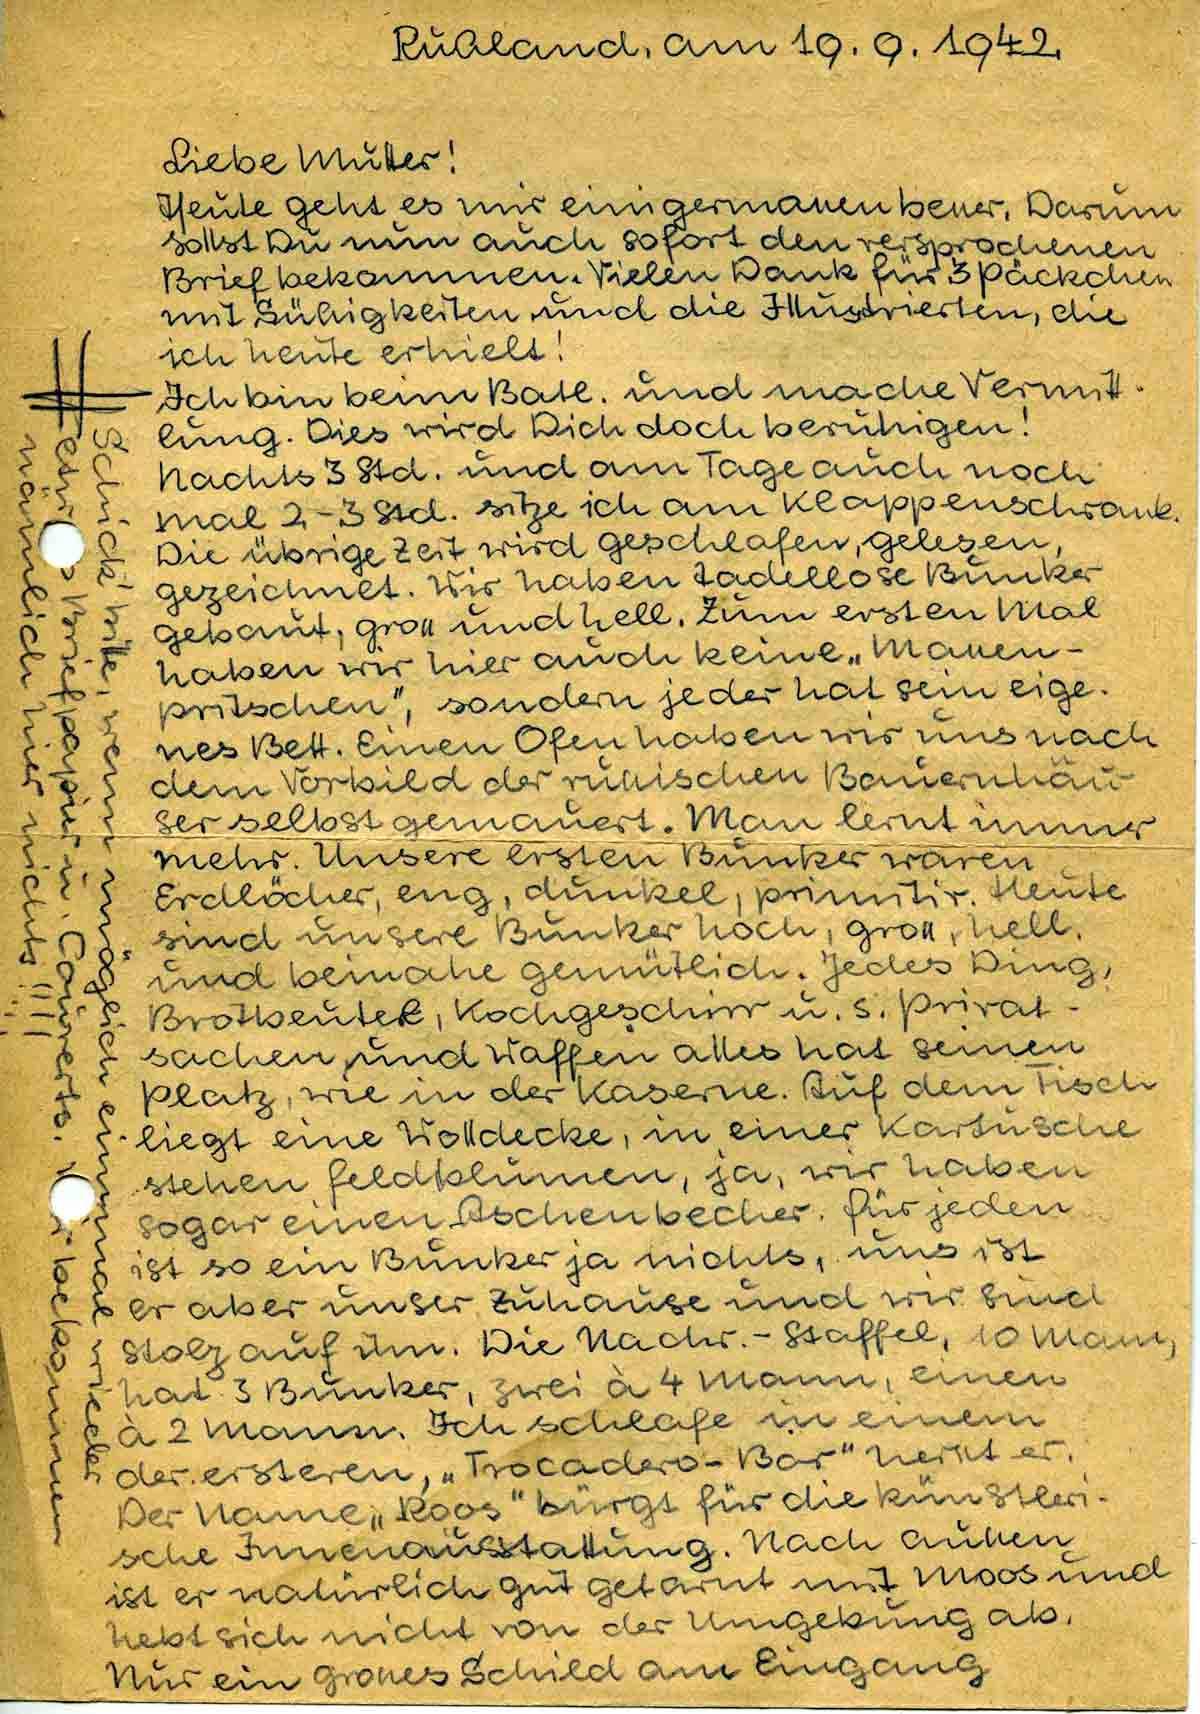 Rußland, am 19. 9. 1942.
Liebe Mutter!
Heute geht es mir einigermaßen besser. Darum
sollst Du nun auch sofort den versprochenen
Brief bekommen. Vielen Dank für 3 Päckchen
mit Süßigkeiten und die Illustrierten, die
ich heute erhielt!
Ich bin beim Batl. und mache Vermitt-
lung. Dies wird Dich doch beruhigen!
Nachts 3 Std. und am Tage auch noch
mal 2-3 Std. sitze ich am Klappenschrank.
Die übrige Zeit wird geschlafen, gelesen,
gezeichnet. Wir haben tadellose Bunker
gebaut, groß und hell. Zum ersten Mal
haben wir hier auch keine „Massen-
pritschen“, sondern jeder hat sein eige-
nes Bett. Einen Ofen haben wir uns nach
dem Vorbild der rußischen Bauernhäu-
ser selbst gemauert. Man lernt immer
mehr. Unsere ersten Bunker waren
Erdlöcher, eng, dunkel, primitiv. Heute
sind unsere Bunker hoch, groß, hell,
und beinahe gemütlich. Jedes Ding,
Brotbeutel, Kochgeschirr u. s. Privat-
sachen und Waffen alles hat seinen
Platz, wie in der Kaserne. Auf dem Tisch
liegt eine Wolldecke, in einer Kartusche
stehen Feldblumen, ja, wir haben
sogar einen Aschenbecher. Für jeden
ist so ein Bunker ja nichts, uns ist
er aber unser Zuhause und wir sind
stolz auf ihn. Die Nachr.-Staffel, 10 Mann,
hat 3 Bunker, zwei à 4 Mann, einen
à 2 Mann. Ich schlafe in einem
der ersteren, „Trocadero-Bar“ heißt er.
Der Name „Roos“ bürgt für die künstleri-
sche Innenausstattung. Nach außen
ist er natürlich gut getarnt mit Moos und
hebt sich nicht von der Umgebung ab.
Nur ein großes Schild am Eingang
Schick' bitte, wenn möglich einmal wieder
Briefpapier u. Couverts. bekommen
nämlich hier nichts!!!!